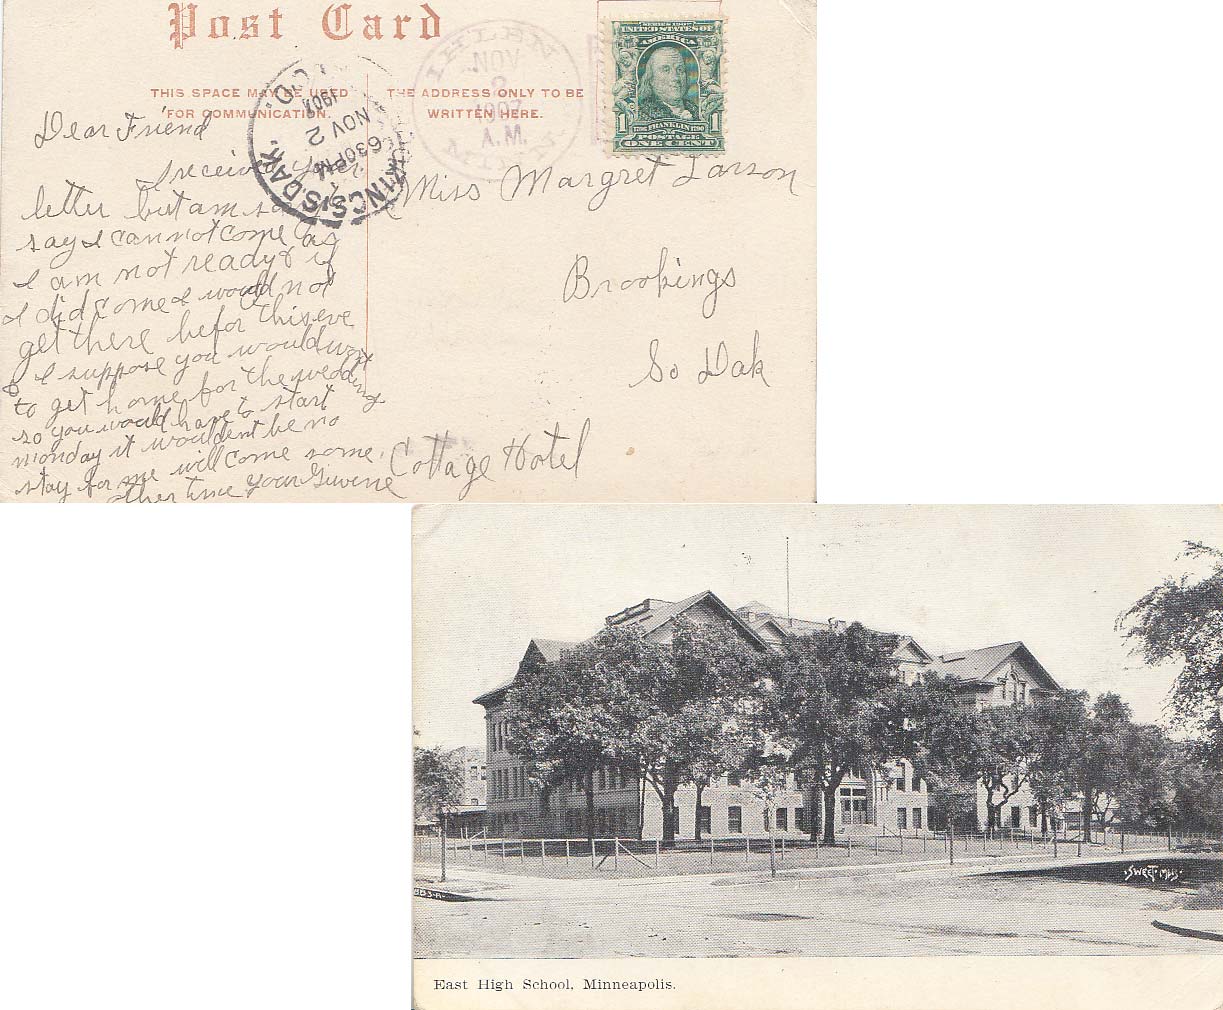 Post Card
THIS SPACE MAY BE USED
FOR COMMUNICATION.
THE ADDRESS ONLY TO BE
WRITTEN HERE.
IHLEN
NOV
2
1907
A.M.
MINN.
REC'D.
1907
NOV 2
630PM
S.DAK.
SERIES 1902
UNITED STATES OF
AMERICA
1 FRANKLIN 1
POSTAGE
ONE CENT
Dear Friend
I received your
letter but am
say I can not come as
I am not ready & if
I did come I would not
get there befor this eve
& I suppose you would want
to get home for the wedding
so you would have to start
monday it wouldent be no
stay for me will come some
other time your
Miss Margret Larson
Brookings
So Dak
Cottage Hotel
SWEET MPLS
East High School, Minneapolis.